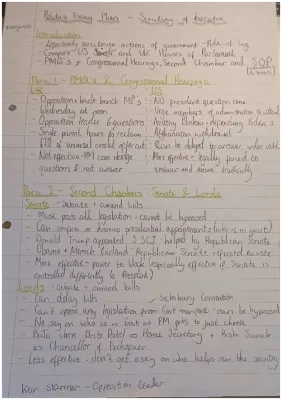 Politics Essay Plan - Scrutiny of Executive
Introduction
- Effectively scrutinise actions of government - Role of leg
Compare US Senate and UK Houses of Parliament
PMQ's & Congressional Hearings, Second Chamber and SOP
Para 1 - PMQ's & Congressional Hearings
UK
US
- Opposition & back bench MP's
- Wednesday at noon
- Opposition leader 6 questions
questions & not answer
- NO president question time
- Have members of administration
- Antony Blinken
- Afghanistan withdrawal
- Can be obliged to answer under oath
- More effective - legally forced to
answer and more truthfully
Para 2 - Second Chambers - Senate & Lords
Senate - Debate + amend bills
- Must pass all legislation - cannot be bypassed
- Can confirm or deny presidential appointments
- Donald Trump appointed 3 SCJ - helped by Republican Senate
- Obama + Merrick Garland Republican Senate refused to vote
- More effective - power to block (especially effective if Senate is
controlled differently to President)
Lords - debate + amend bills
- Can delay bills
Salisbury Convention
- Can't oppose any legislation from Govt manifesto - can be bypassed
- No say on who is in but PM gets to just choose
- Boris chose Priti Patel as Home Secretary + Rishi Sunak
as Chancellor of Exchequer
- Less effective - don't get a say on who helps run the country
Keir Starmer - Opposition Leader